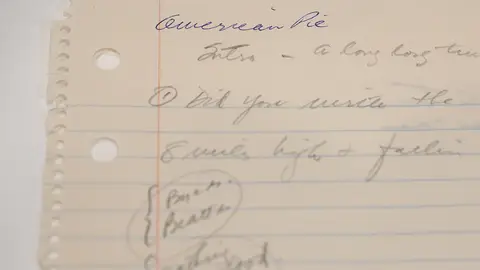 American Pie
Intro - A long long
① Did you write the
8 miles high + fallin
Byrds
Beatles